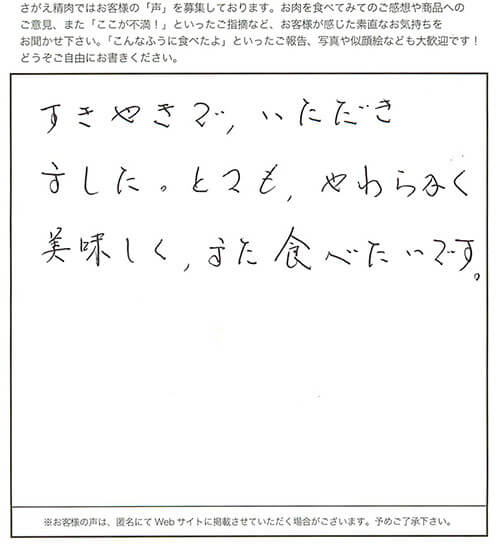 さがえ精肉ではお客様の「声」を募集しております。お肉を食べてみてのご感想や商品への
ご意見、また「ここが不満！」といったご指摘など、お客様が感じた素直なお気持ちを
お聞かせ下さい。「こんなふうに食べたよ」といったご報告、写真や似顔絵なども大歓迎です！
どうぞご自由にお書きください。
すきやきで、いただき
ました。とても、やわらかく
美味しく、また食べたいです。
※お客様の声は、匿名にてWebサイトに掲載させていただく場合がございます。予めご了承下さい。